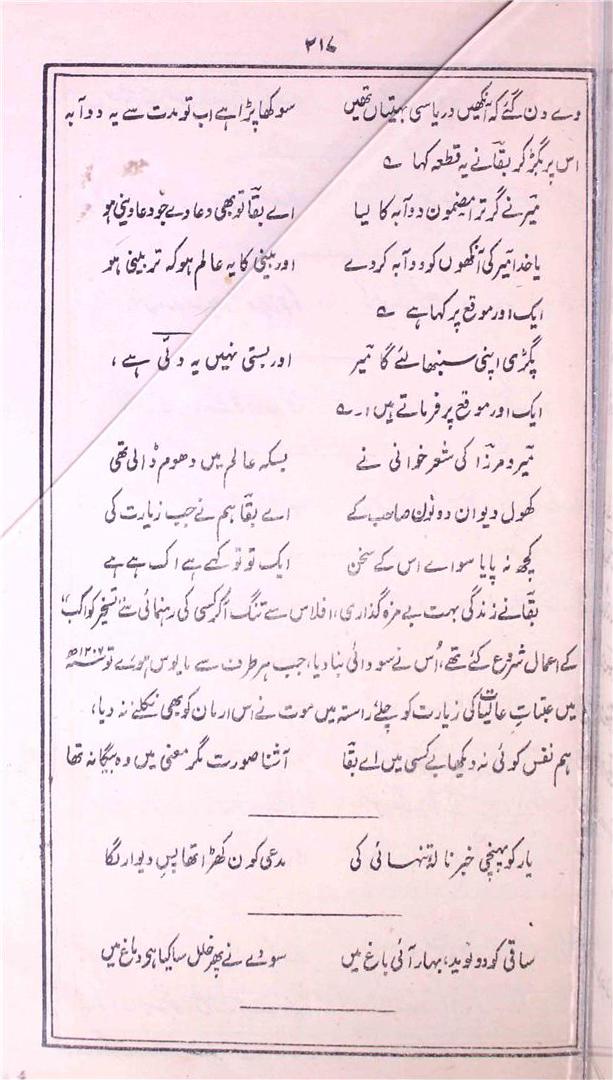 ۲۱۷
وے دن گئے کہ آنکھیں دریا سی بہتیاں تھیں سوکھا پڑا ہے اب تو مدت سے یہ دوآبہ
اس پر بگڑ کر بقا نے یہ قطعہ کہا ؎
میر نے گر ترا مضمون دوآبہ کا لیا اے بقا تو بھی دعا دے جو دعا دینی ہو
یا خدا میر کی آنکھوں کو دوآبہ کر دے اور بینی کا یہ عالم ہو کہ تر بینی ہو
ایک اور موقع پر کہا ہے ؎
پگڑی اپنی سنبھالئے گا میر اور بستی نہیں یہ دلّی ہے ،
ایک اور موقع پر فرماتے ہیں :۔ ؎
میر و مرزا کی شعر خوانی نے بسکہ عالم میں دھوم ڈالی تھی
کھول دیوان دونوں صاحب کے اے بقا ہم نے جب زیارت کی
کچھ نہ پایا سواے اس کے سخن ایک تو تو کہے ہے اک ہے ہے
بقا نے زندگی بہت بے مزہ گذاری، افلاس سے تنگ آ کر کسی کی رہنمائی سے "تسخیر کواکب"
کے اعمال شروع کئے تھے، اُس نے سودائی بنا دیا، جب ہر طرف سے مایوس ہوے تو ۱۲۰۶ھ
میں عتبات عالیات کی زیارت کو چلے راستہ میں موت نے اس ارمان کو بھی نکلنے نہ دیا،
ہم نفس کوئی نہ دیکھا بے کسی میں اے بقا آشنا صورت مگر معنی میں وہ بیگانہ تھا
یار کو پہنچی خبر نالۂ تنہائی کی مدعی کون کھڑا تھا پس دیوار لگا
ساقی کو دو نوید، بہار آئی باغ میں سودے نے پھر خلل سا کیا ہی دماغ میں